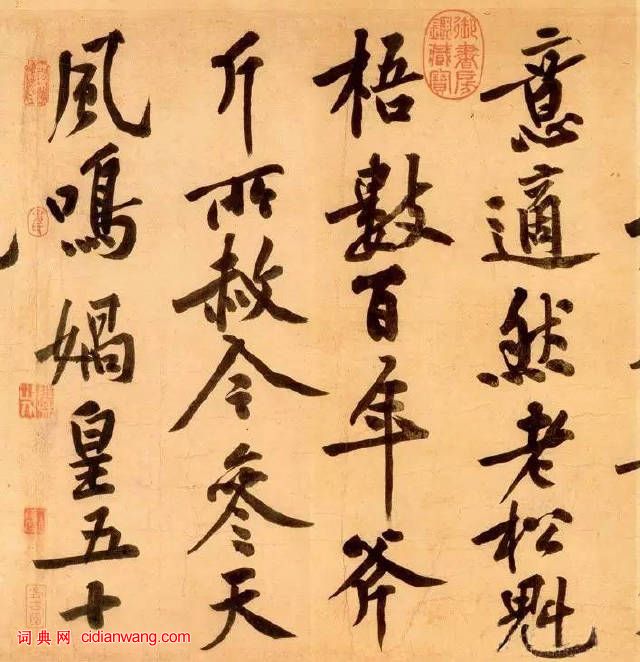 意適然老松魁
梧數百年斧
斤所赦今參天
風鳴媧皇五十
御書房鑑藏寶
词典网 cidianwang.com